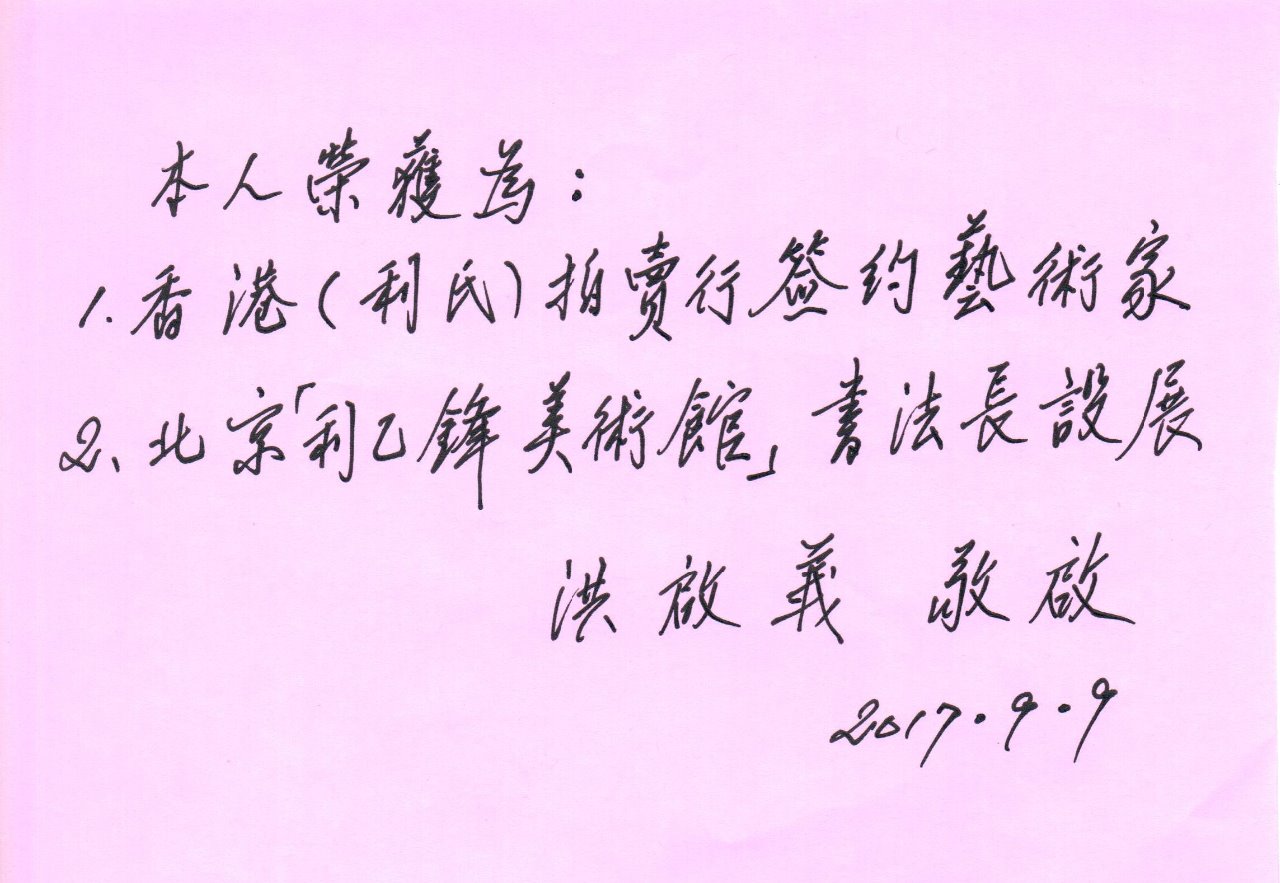 本人榮獲為：
1.香港（利氏）拍賣行簽约藝術家
2、北京「利乙鋒美術館」書法長設展
洪啟義 敬啟
2017.9.9